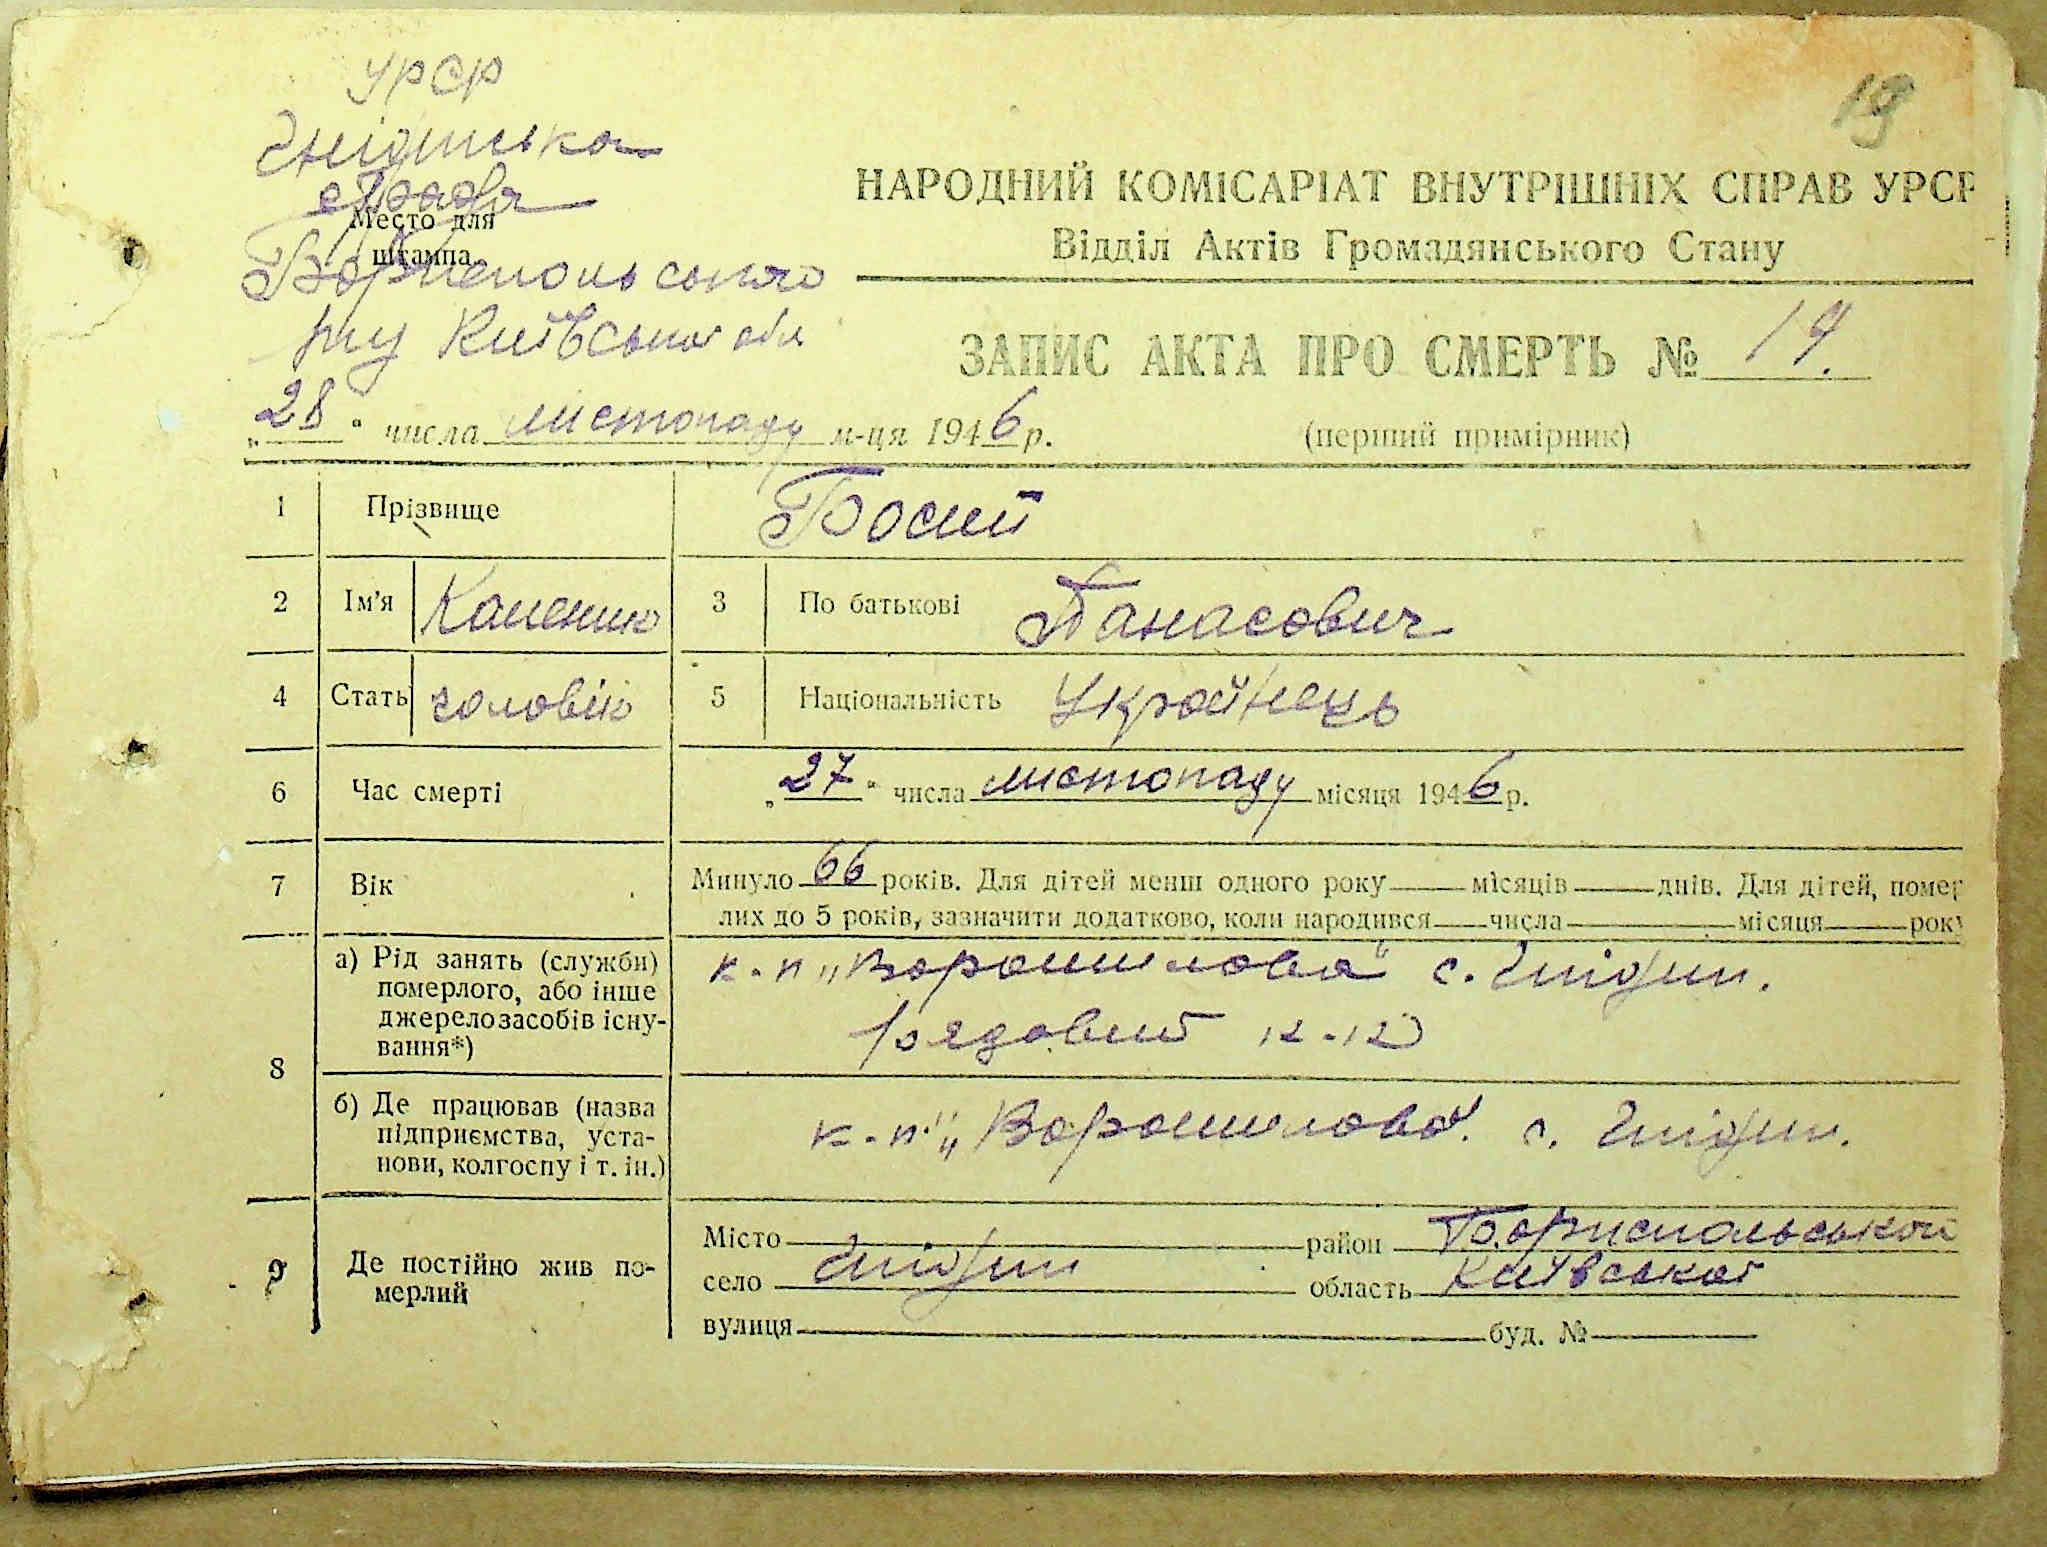 19
УРСР
Гнідинська
с/рада
Место для
штампа
Бориспольського
р-ну Київської обл
НАРОДНИЙ КОМІСАРІАТ ВНУТРІШНІХ СПРАВ УРСР
Відділ Актів Громадянського Стану
ЗАПИС АКТА ПРО СМЕРТЬ № 19.
„28" числа листопаду м-ця 1946 р.
(перший примірник)
1 Прізвище Босий
2 Ім'я Каленик 3 По батькові Панасович
4 Стать чоловік 5 Національність Українець
6 Час смерті „27" числа листопаду місяця 1946 р.
7 Вік Минуло 66 років. Для дітей менш одного року місяців днів. Для дітей, помер
лих до 5 років, зазначити додатково, коли народився числа місяця року
8 а) Рід занять (служби)
померлого, або інше
джерело засобів існу-
вання*)
к-п „Ворошилова" с. Гнідин.
рядовий к-к
б) Де працював (назва
підприємства, уста-
нови, колгоспу і т. ін.)
к-п „Ворошилова". с. Гнідин.
9 Де постійно жив по-
мерлий
Місто район Бориспольської
село Гнідин область Київської
вулиця буд. №